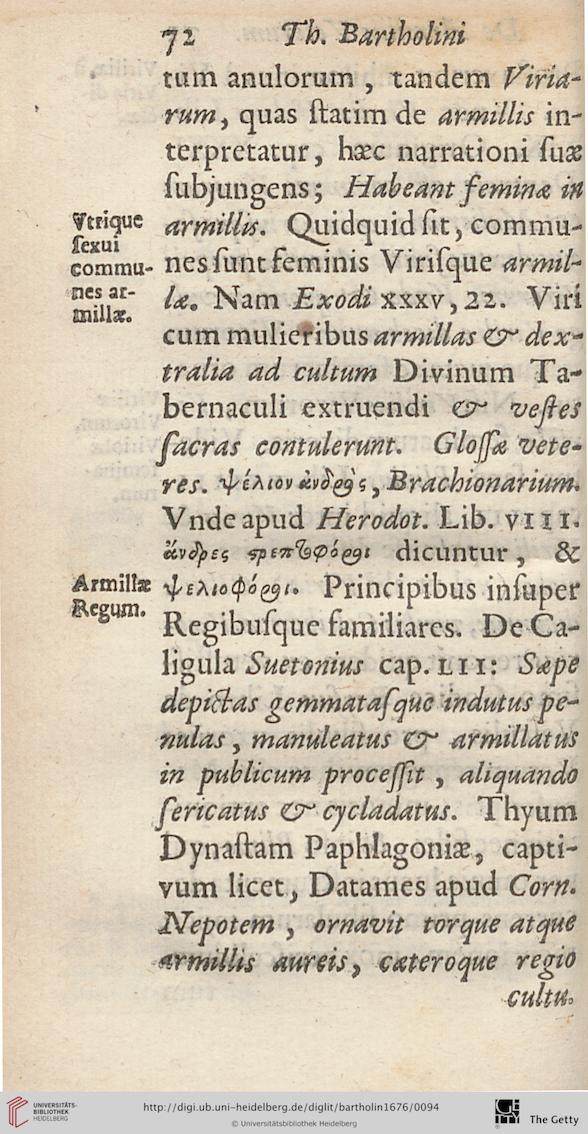 72 Th. Bartholini
tum anulorum, tandem Viria-
rum, quas ſtatim de armillis in-
terpretatur, hæc narrationi ſuæ
ſubjungens; Habeant feminæ in
armillis. Quidquid ſit, commu-
nes ſunt feminis Viriſque armil-
læ. Nam Exodi XXXV, 22. Viri
cum mulieribus armillas & dex-
tralia ad cultum Divinum Ta-
bernaculi extruendi & veſtes
ſacras contulerunt. Gloſſæ vete-
res. ψέλιον ἀνδρὸς, Brachionarium.
Vnde apud Herodot. Lib. VIII.
ἄνδρες στρεπτοφόροι dicuntur, &
ψελιοφόροι. Principibus inſuper
Regibuſque familiares. De Ca-
ligula Suetonius cap. LII: Sæpe
depictas gemmataſque indutus pe-
nulas, manuleatus & armillatus
in publicum proceſſit, aliquando
ſericatus & cycladatus. Thyum
Dynaſtam Paphlagoniæ, capti-
vum licet, Datames apud Corn.
Nepotem, ornavit torque atque
armillis aureis, cæteroque regio
cultu.
Vtrique
ſexui
commu-
nes ar-
millæ.
Armillæ
Regum.
UNIVERSITÄTS-
BIBLIOTHEK
HEIDELBERG
http://digi.ub.uni-heidelberg.de/diglit/bartholin1676/0094
© Universitätsbibliothek Heidelberg
The Getty